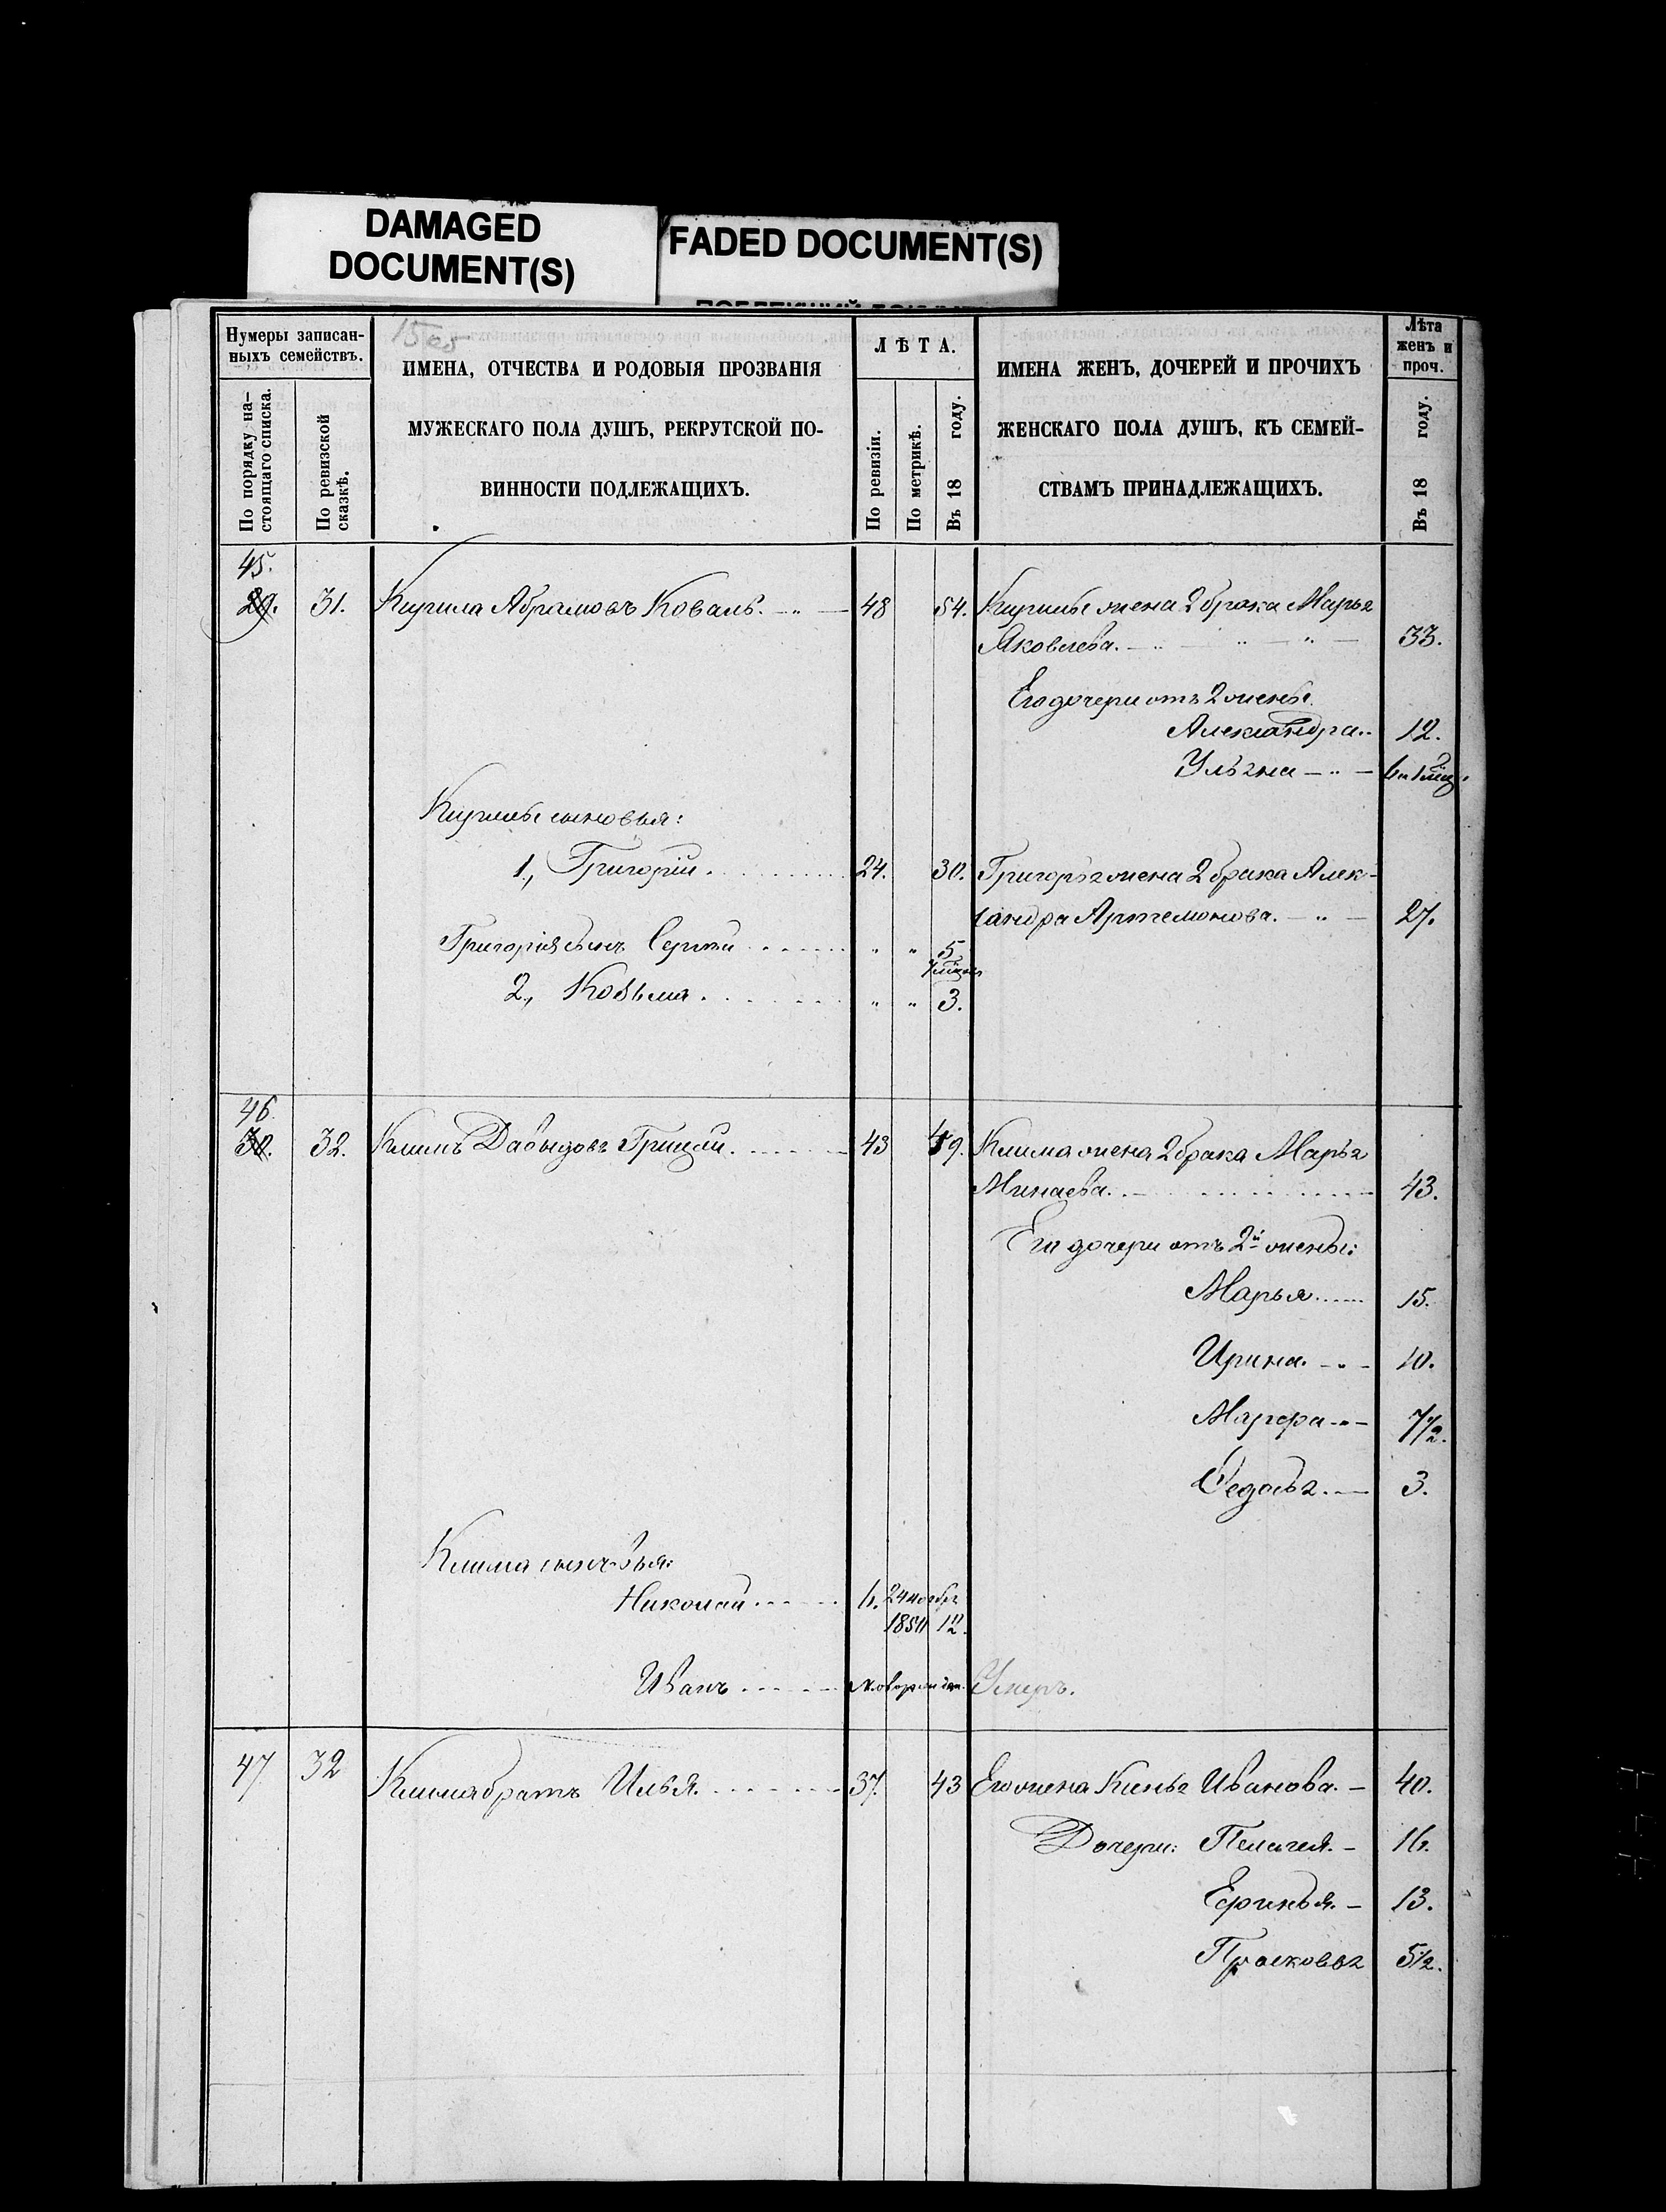 DAMAGED
DOCUMENT(S)
FADED DOCUMENT(S)
Нумеры записан-
ныхъ семействъ.
По порядку на-
стоящаго списка.
По ревизской
сказкѣ.
ИМЕНА, ОТЧЕСТВА И РОДОВЫЯ ПРОЗВАНІЯ
МУЖЕСКАГО ПОЛА ДУШЪ, РЕКРУТСКОЙ ПО-
ВИННОСТИ ПОДЛЕЖАЩИХЪ.
ЛѢТА.
По ревизіи.
По метрикѣ.
Въ 18 году.
ИМЕНА ЖЕНЪ, ДОЧЕРЕЙ И ПРОЧИХЪ
ЖЕНСКАГО ПОЛА ДУШЪ, КЪ СЕМЕЙ-
СТВАМЪ ПРИНАДЛЕЖАЩИХЪ.
Лѣта
женъ и
проч.
Въ 18 году.
45.
29. 31. Кирила Абрамовъ Коваль. 48 54. Кирилы жена 2 брака Марья
Яковлева. 33.
Его дочери отъ 2 жены
Александра. 12.
Ульяна
Кирилы сыновья:
1, Григорій. 24. 30. Григорья жена 2 брака Алек-
сандра Артемонова. 27.
Григорія сынъ Сергѣй " " 5
2, Козьма. " " 3.
46.
30. 32. Климъ Давыдовъ Грицай. 43 49. Клима жена 2 брака Марья
Минаева. 43.
Его дочери отъ 2й жены:
Марья 15.
Ирина. 10.
Марфа 7½.
Федосья. 3.
Клима сыновья:
Николай 6. 24 ноября
12.
Иванъ новорожден. Умеръ.
47 32 Клима братъ Илья. 37. 43 Его жена Ивановa. 40.
Дочери: Пелагея. 16.
Ефинья. 13.
Прасковья 5½.